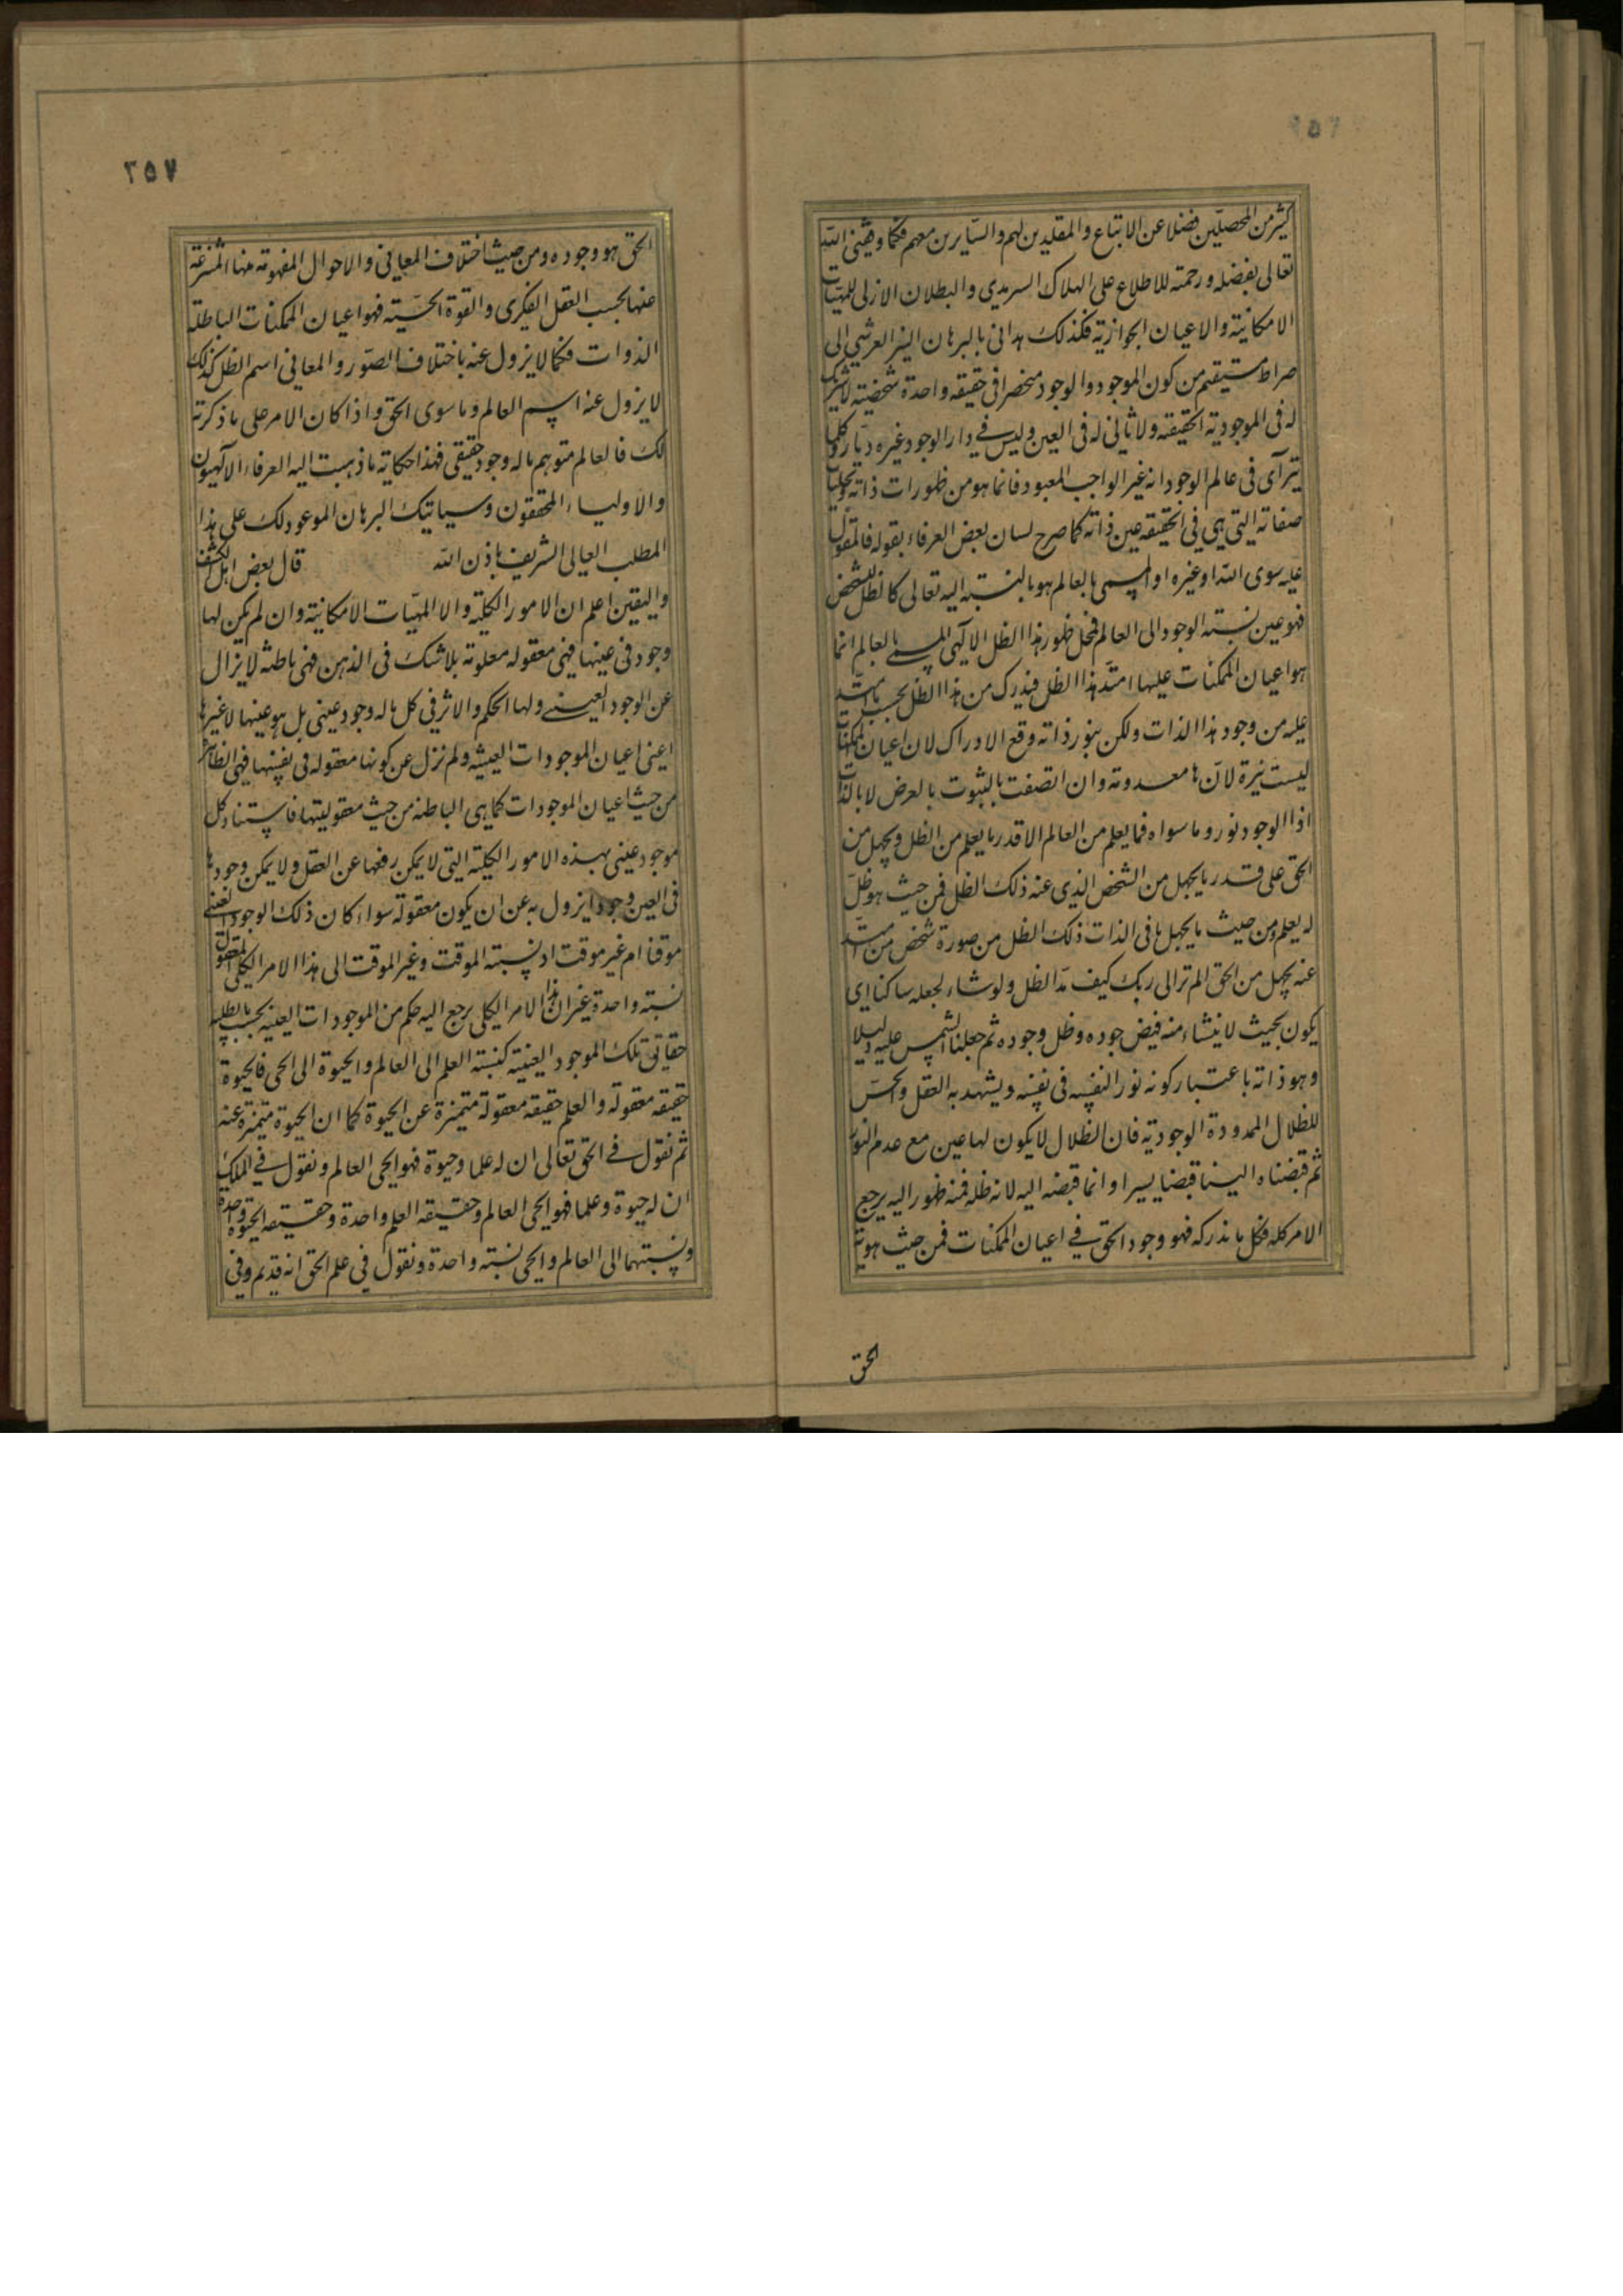 ٢٥٦
كثير من المحصلين فضلا عن الاتباع والمقلدين لهم والسايرين معهم فكما وفقنى الله
تعالى بفضله ورحمته للاطلاع على الهلاك السرمدي والبطلان الازلى للمهيات
الامكانية والاعيان الجوازية فكذلك هدانى بالبرهان النير العرشي الى
صراط مستقيم من كون الموجود والوجود منحصرا فى حقيقه واحدة شخصية لاشريك
له فى الموجودية الحقيقه ولا ثانى له فى العين وليس في دار الوجود غيره ديار وكلما
يترآى فى عالم الوجود انه غير الواجب المعبود فانما هو من ظهورات ذاته وتجليات
صفاته التى هي فى الحقيقه عين ذاته كما صرح لسان بعض العرفاء بقوله فالمقول
عليه سوى الله او غيره او المسمى بالعالم هو بالنسبته اليه تعالى كالظل للشخص
فهو عين نسبته الوجود الى العالم فمحل ظهور هذا الظل الالهى المسمى بالعالم انما
هو اعيان الممكنات عليها امتد هذا الظل فيدرك من هذا الظل بحسب ما امتد
عليه من وجود هذا الذات ولكن بنور ذاته وقع الادراك لان اعيان الممكنات
ليست نيرة لانها معدومة وان اتصفت بالثبوت بالعرض لا بالذات
اذ الوجود نور وما سواه فما يعلم من العالم الا قدر ما يعلم من الظل ويجهل من
الحق على قدر ما يجهل من الشخص الذى عنه ذلك الظل فمن حيث هو ظل
له يعلم ومن حيث ما يجهل ما فى الذات ذلك الظل من صورة شخص من امتد
عنه يجهل من الحق الم تر الى ربك كيف مد الظل ولو شاء لجعله ساكنا اى
يكون بحيث لا ينشاء منه فيض جوده وظل وجوده ثم جعلنا الشمس عليه دليلا
وهو ذاته باعتبار كونه نور النفسه فى نفسه ويشهد به العقل والحس
للظلال الممدودة الوجودية فان الظلال لا يكون لها عين مع عدم النور
ثم قبضناه الينا قبضا يسيرا وانما قبضه اليه لانه ظله فمنه ظهور اليه يرجع
الامر كله فكل ما ندركه فهو وجود الحق في اعيان الممكنات فمن حيث هوية
الحق
٢٥٧
الحق هو وجوده ومن حيث اختلاف المعانى والاحوال المفهومة منها المنتزعة
عنها بحسب العقل الفكرى والقوة الحسية فهو اعيان الممكنات الباطلة
الذوات فكما لا يزول عنه باختلاف الصور والمعانى اسم الظل كذلك
لا يزول عنه اسم العالم وما سوى الحق واذا كان الامر على ما ذكرته
لك فالعالم متوهم ما له وجود حقيقى فهذا حكاية ما ذهبت اليه العرفاء الالهيون
والاولياء المحققون وسياتيك البرهان الموعود لك على هذا
المطلب العالى الشريف باذن الله قال بعض اهل الكشف
واليقين اعلم ان الامور الكلية والا المهيات الامكانية وان لم يكن لها
وجود فى عينها فهى معقوله معلومة بلا شك فى الذهن فهى باطنة لا يزال
عن الوجود العينى ولها الحكم والاثر فى كل ما له وجود عينى بل هو عينها لا غيرها
اعنى اعيان الموجودات العينيه ولم تزل عن كونها معقوله فى نفسها فهى الظاهرة
من حيث اعيان الموجودات كما هى الباطنه من حيث معقوليتها فاستناد كل
موجود عينى بهذه الامور الكلية التى لا يمكن رفعها عن العقل ولا يمكن وجودها
فى العين وجودا يزول به عن ان يكون معقولة سواء كان ذلك الوجود العينى
موقتا ام غير موقت اذ نسبته الموقت وغير الموقت الى هذا الامر الكلى المعقول
نسبته واحدة غير ان هذا الامر الكلى يرجع اليه حكم من الموجودات العينيه بحسب ما يطلبه
حقايق تلك الموجود العينية كنسبته العلم الى العالم والحيوة الى الحى فالحيوة
حقيقه معقوله والعلم حقيقه معقولة متميزة عن الحيوة كما ان الحيوة متميزة عنه
ثم نقول في الحق تعالى ان له علما وحيوة فهو الحى العالم ونقول في الملك
ان له حيوة وعلما فهو الحى العالم وحقيقه العلم واحدة وحقيقه الحيوة واحدة
ونسبتهما الى العالم والحى نسبته واحدة ونقول فى علم الحق انه قديم وفى